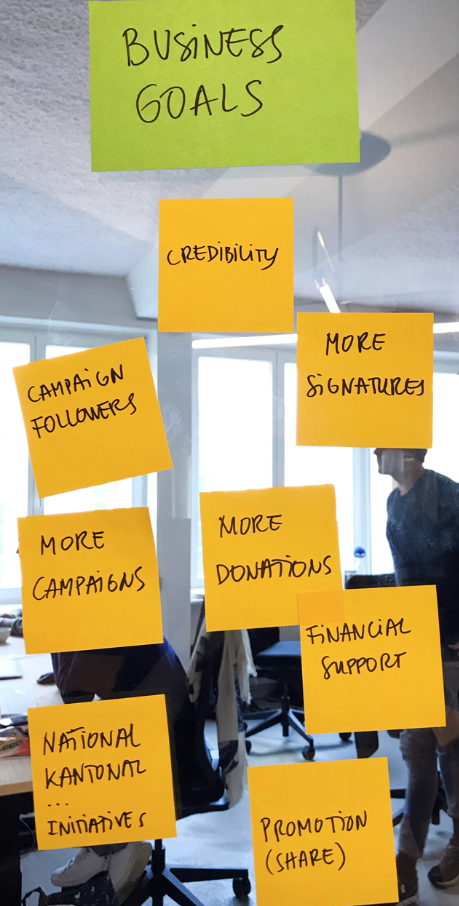 BUSINESS
GOALS
CREDIBILITY
MORE
SIGNATURES
CAMPAIGN
FOLLOWERS
MORE
DONATIONS
MORE
CAMPAIGNS
FINANCIAL
SUPPORT
NATIONAL
KANTONAL
...
INITIATIVES
PROMOTION
(SHARE)